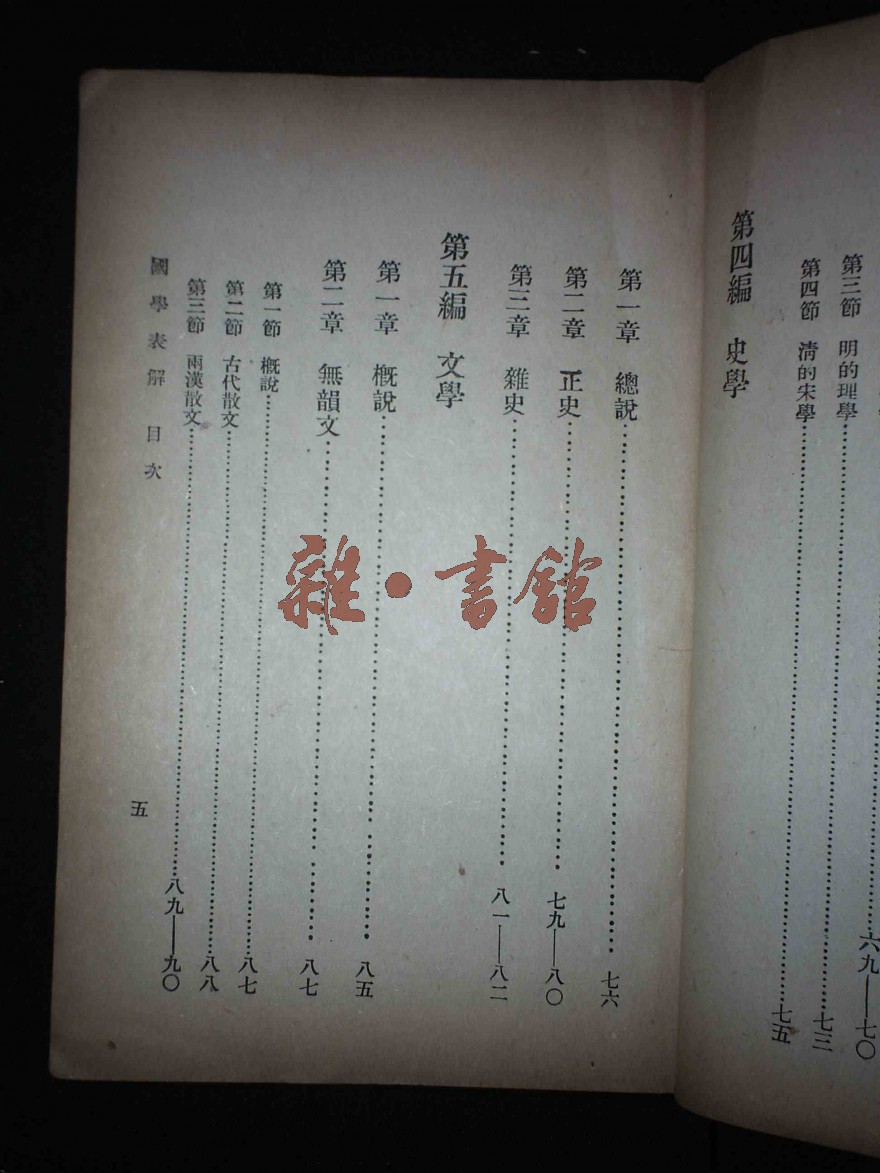 六九——七〇
第三節　明的理學……七三
第四節　淸的宋學……七五
第四編　史學
第一章　總說……七六
第二章　正史……七九——八〇
第三章　雜史……八一——八二
第五編　文學
第一章　概說……八五
第二章　無韻文……八七
第一節　概說……八七
第二節　古代散文……八八
第三節　兩漢散文……八九——九〇
國學表解　目次
五
雜·書館